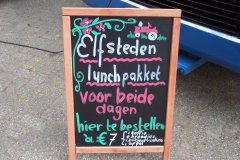 Elfsteden
lunchpakket
voor beide
dagen
hier te bestellen
à € 7